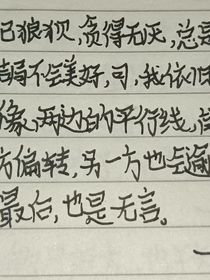 已狼狈,贪得无厌,总是
结局不会美好,可,我依旧
像,两边的平行线,
方偏转,另一方也会逾
最后,也是无言。